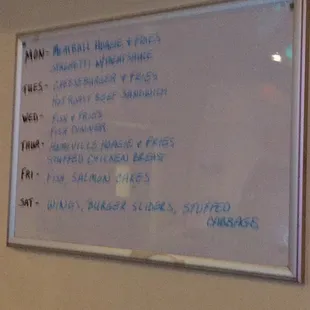 MON - MEATBALL HOAGIE & FRIES
SPAGHETTI W/MEATSAUCE
TUES - CHEESEBURGER & FRIES
HOT ROAST BEEF SANDWICH
WED - FISH & FRIES
FISH DINNER
THUR - HOAGIE & FRIES
STUFFED CHICKEN BREAST
FRI - FISH, SALMON CAKES
SAT - WINGS, BURGER SLIDERS, STUFFED
CABBAGE